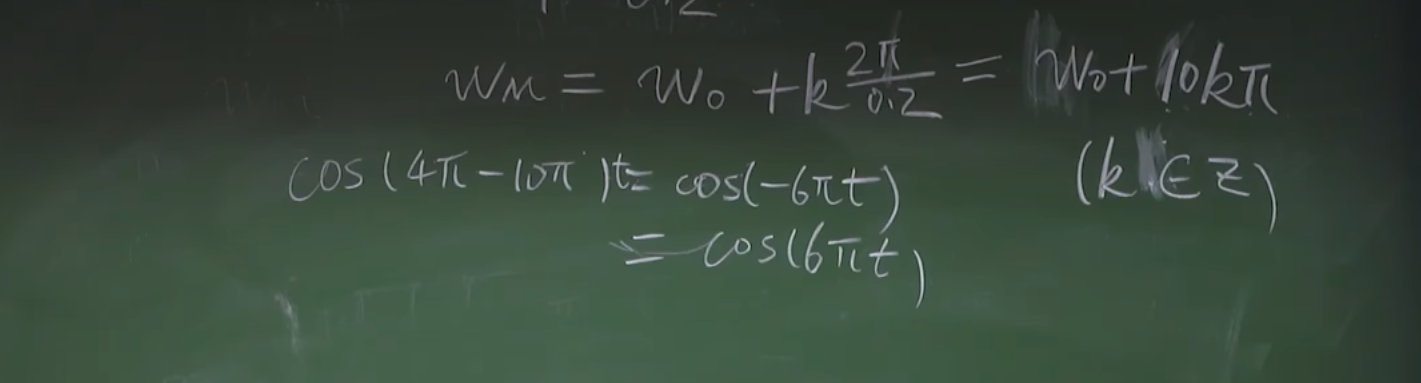 Wm = W₀ + k 2π/0.2 = W₀ + 10kπ
cos(4π-10π)t = cos(-6πt) (k ∈ Z)
= cos(6πt)